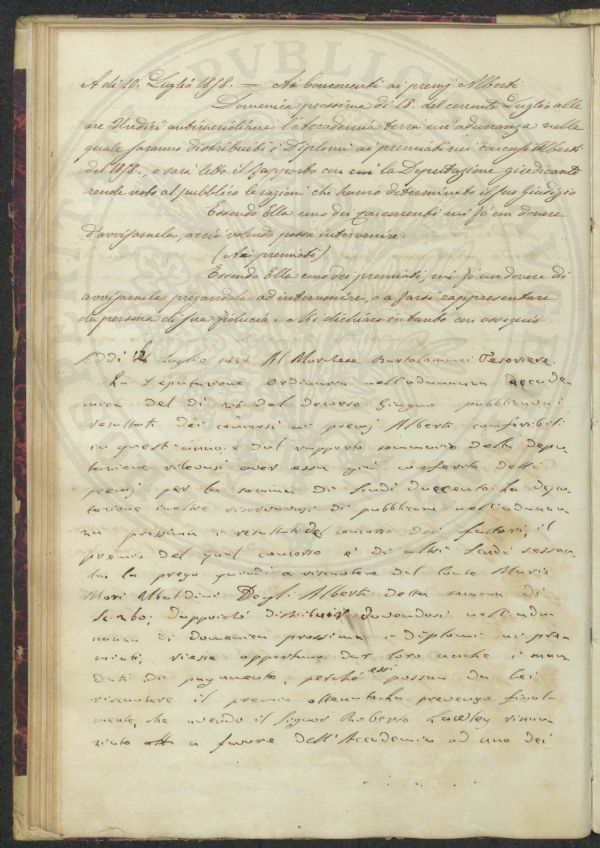 A di 10. Luglio 1858. = Ai Concorrenti ai premj Alberti
Domenica prossima di 18. del corrente Luglio alle
ore Undici antimeridiane l'Accademia terrà un'adunanza nella
quale saranno distribuiti i Diplomi ai premiati nei concorsi Alberti
del 1858., e sarà letto il Rapporto con cui la Deputazione giudicante
rende noto al pubblico le ragioni che hanno determinato il suo giudizio
Essendo Ella uno dei concorrenti mi fò un dovere
d'avvisarnela, acciò volendo possa intervenire.
(Ai premiati)
Essendo Ella uno dei premiati, mi fò un dovere di
avvisarnela pregandola ad intervenire, o a farsi rappresentare
da persona di sua fiducia. Mi dichiaro intanto con ossequio
Adi Luglio 1858 Al Marchese Bartolommei Tesoriere.
La Deputazione Ordinaria nell'adunanza Accade-
mica del di del decorso Giugno pubblicò i
resultati dei concorsi ai premj Alberti conferibili
in quest'anno, e dal rapporto sommario della Depu-
tazione rilevasi aver essa già conferito detti
premj per la somma di Scudi Duecento. La Depu-
tazione inoltre riservavasi di pubblicare nell'adunan-
za prossima i resultati del concorso dei fattori, il
premio del qual concorso è di altri Scudi sessan-
ta. La prego quindi a riscuotere dal Conte Mario
Mori Ubaldini Degli Alberti detta somma di
Sc. 260; dappoichè distribuir dovendosi nell'adu-
nanza di domenica prossima i diplomi ai pre-
miati, riesce opportuno dar loro anche i man-
dati di pagamento, perchè essi possan da Lei
riscuotere il premio ottenuto. La prevengo final-
mente, che avendo il Signor Roberto Lawley rinun-
ziato a favore dell'Accademia ad uno dei